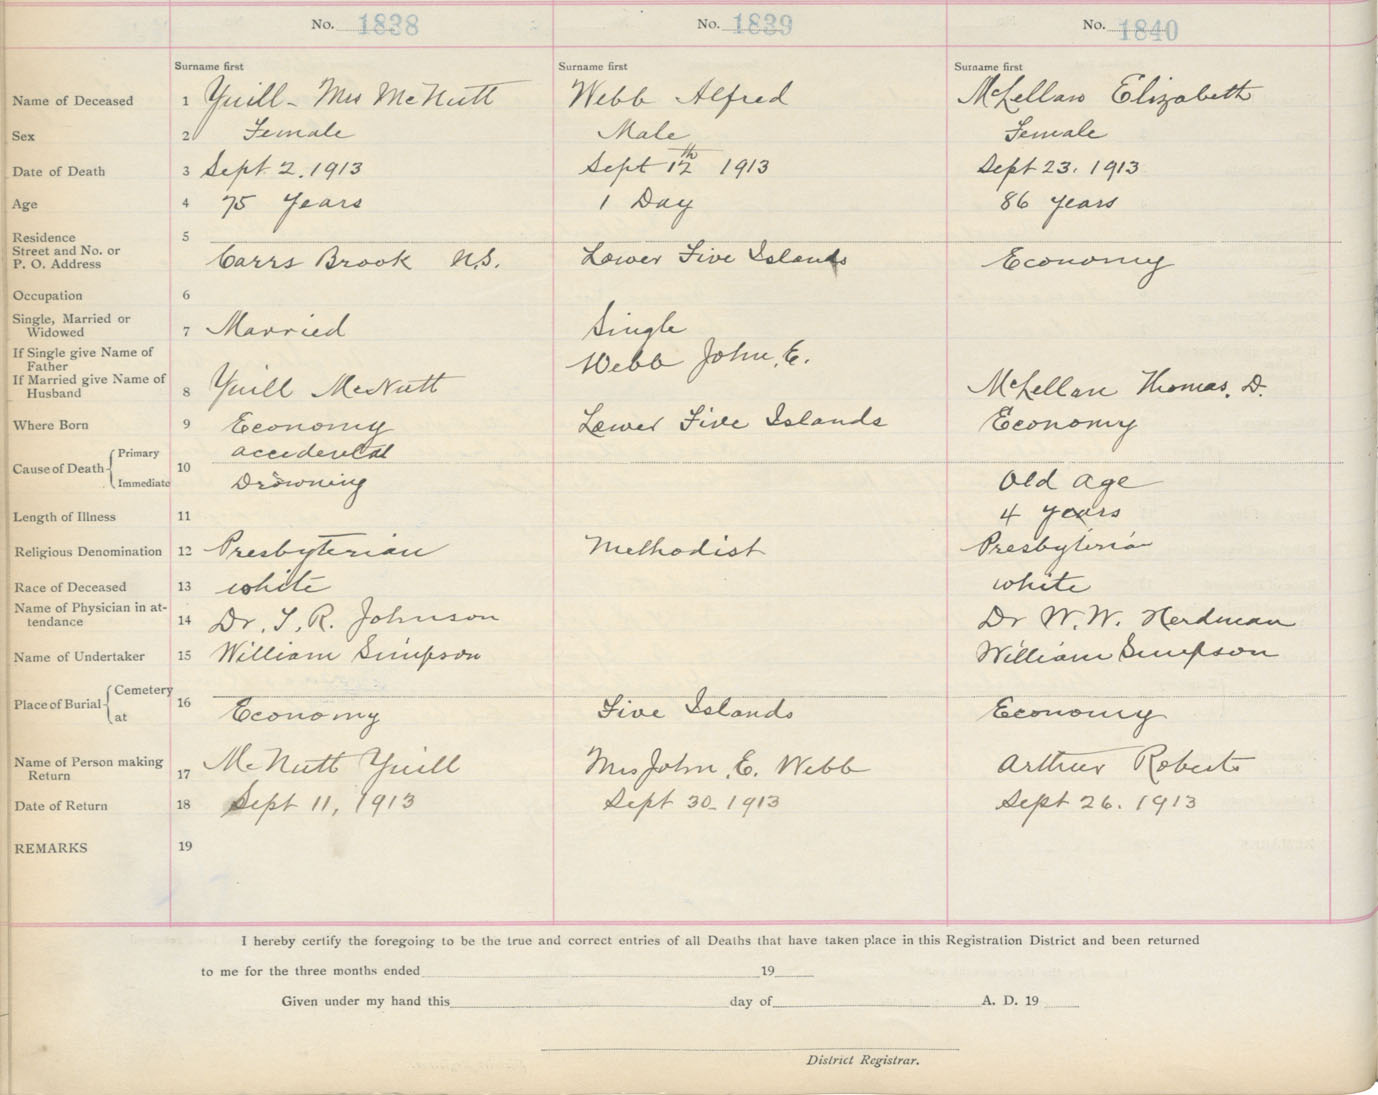 No. 1838 No. 1839 No. 1840
Surname first Surname first Surname first
Name of Deceased 1 Yuill - Mrs McNutt Webb Alfred McLellan Elizabeth
Sex 2 Female Male Female
Date of Death 3 Sept 2. 1913 Sept 12th 1913 Sept 23. 1913
Age 4 75 Years 1 Day 86 years
Residence 5
Street and No. or
P. O. Address Carrs Brook N.S. Lower Five Islands Economy
Occupation 6
Single, Married or
Widowed 7 Married Single
If Single give Name of
Father Webb John, E.
If Married give Name of
Husband 8 Yuill McNutt McLellan Thomas. D.
Where Born 9 Economy Lower Five Islands Economy
Cause of Death Primary accidental
10
Immediate Drowning Old age
Length of Illness 11 4 years
Religious Denomination 12 Presbyterian Methodist Presbyterian
Race of Deceased 13 white white
Name of Physician in at-
tendance 14 Dr. T. R. Johnson Dr W. W. Herdman
Name of Undertaker 15 William Simpson William Simpson
Place of Burial Cemetery 16
at Economy Five Islands Economy
Name of Person making
Return 17 McNutt Yuill Mrs John, E. Webb Arthur Roberts
Date of Return 18 Sept 11, 1913 Sept 30 1913 Sept 26. 1913
REMARKS 19
I hereby certify the foregoing to be the true and correct entries of all Deaths that have taken place in this Registration District and been returned
to me for the three months ended 19
Given under my hand this day of A. D. 19
District Registrar.